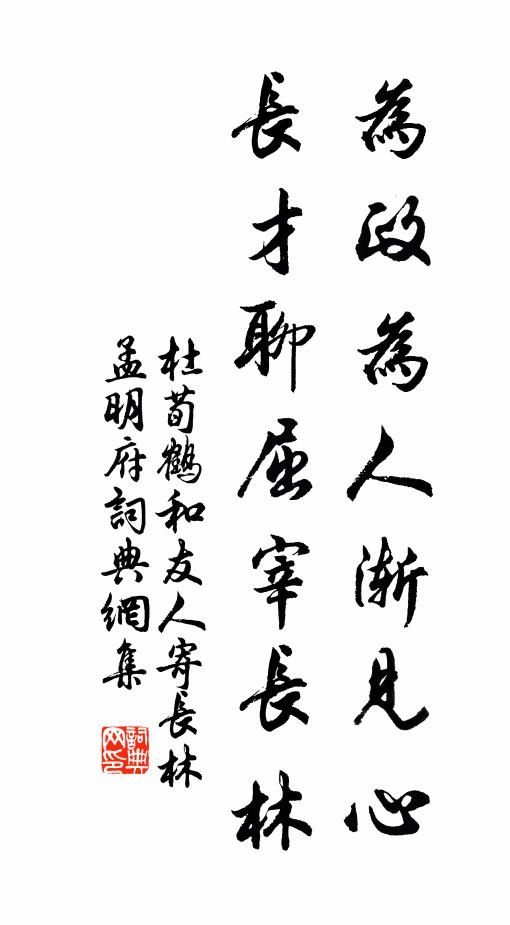 為政為人漸見心
長才聊屈宰長林
杜荀鶴和友人寄長林
孟明府詞典網集
詞典
网印